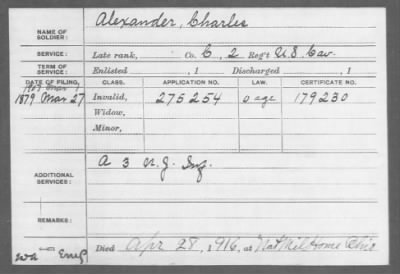 NAME OF SOLDIER: Alexander, Charles
SERVICE: Late rank, Co. C, 2 Reg't U.S. Cav.
TERM OF SERVICE: Enlisted , 1 Discharged , 1
DATE OF FILING. CLASS. APPLICATION NO. LAW. CERTIFICATE NO.
1907 Mar
1879 Mar 27 Invalid, 275254 o age 179230
Widow,
Minor,
ADDITIONAL SERVICES: A 3 N.J. Inf.
REMARKS:
Died Apr 28, 1916, at Nat Mil Home Ohio